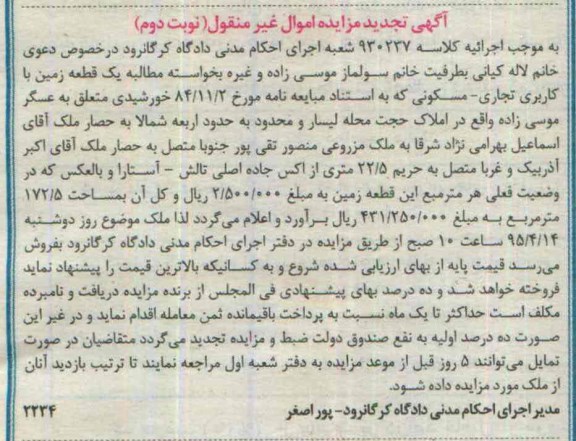 آگهی تجدید مزایده اموال غیر منقول( نوبت دوم)
به موجب اجرائیه کلاسه ۹۳۰۲۳۷ شعبه اجرای احکام مدنی دادگاه کرگانرود درخصوص دعوی
خانم لاله کیانی بطرفیت خانم سولماز موسی زاده و غیره بخواسته مطالبه یک قطعه زمین با
کاربری تجاری- مسکونی که به استناد مبایعه نامه مورخ ۸۴/۱۱/۲ خورشیدی متعلق به عسگر
موسی زاده واقع در املاک حجت محله لیسار و محدود به حدود اربعه شمالا به حصار ملک آقای
اسماعیل بهرامی نژاد شرقا به ملک مزروعی منصور تقی پور جنوبا متصل به حصار ملک آقای اکبر
آذربیک و غربا متصل به حریم ۲۲/۵ متری از اکس جاده اصلی تالش - آستارا و بالعکس که در
وضعیت فعلی هر مترمبع این قطعه زمین به مبلغ ۲/۵۰۰/۰۰۰ ریال و کل آن بمساحت ۱۷۲/۵
مترمربع به مبلغ ۴۳۱/۲۵۰/۰۰۰ ریال برآورد و اعلام می گردد لذا ملک موضوع روز دوشنبه
۹۵/۴/۱۴ ساعت ۱۰ صبح از طریق مزایده در دفتر اجرای احکام مدنی دادگاه کرگانرود بفروش
می‌رسد قیمت پایه از بهای ارزیابی شده شروع و به کسانیکه بالاترین قیمت را پیشنهاد نماید
فروخته خواهد شد و ده درصد بهای پیشنهادی فی المجلس از برنده مزایده دریافت و نامبرده
مکلف است حداکثر تا یک ماه نسبت به پرداخت باقیمانده ثمن معامله اقدام نماید و در غیر این
صورت ده درصد اولیه به نفع صندوق دولت ضبط و مزایده تجدید می گردد متقاضیان در صورت
تمایل می‌توانند ۵ روز قبل از موعد مزایده به دفتر شعبه اول مراجعه نمایند تا ترتیب بازدید آنان
از ملک مورد مزایده داده شود.
مدیر اجرای احکام مدنی دادگاه کرگانرود- پور اصغر ۲۲۳۴